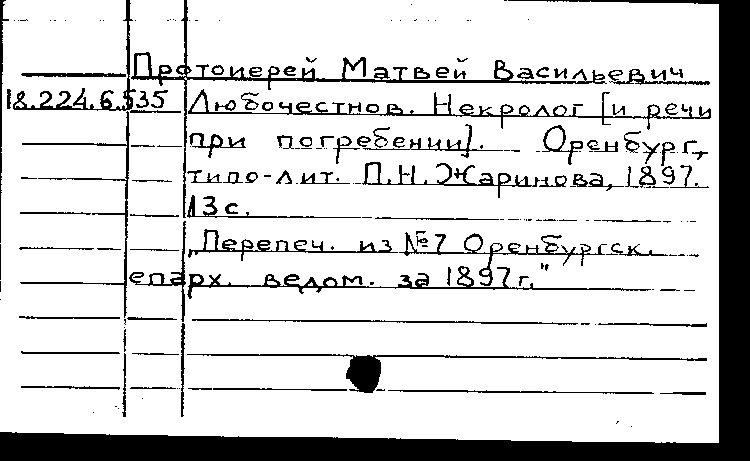 Протоиерей Матвей Васильевич
18.224.6.535 Любочестнов. Некролог [и речи
при погребении]. Оренбург,
типо-лит. П.Н. Жаринова, 1897.
13 с.
„Перепеч. из №7 Оренбургск.
епарх. ведом. за 1897 г."